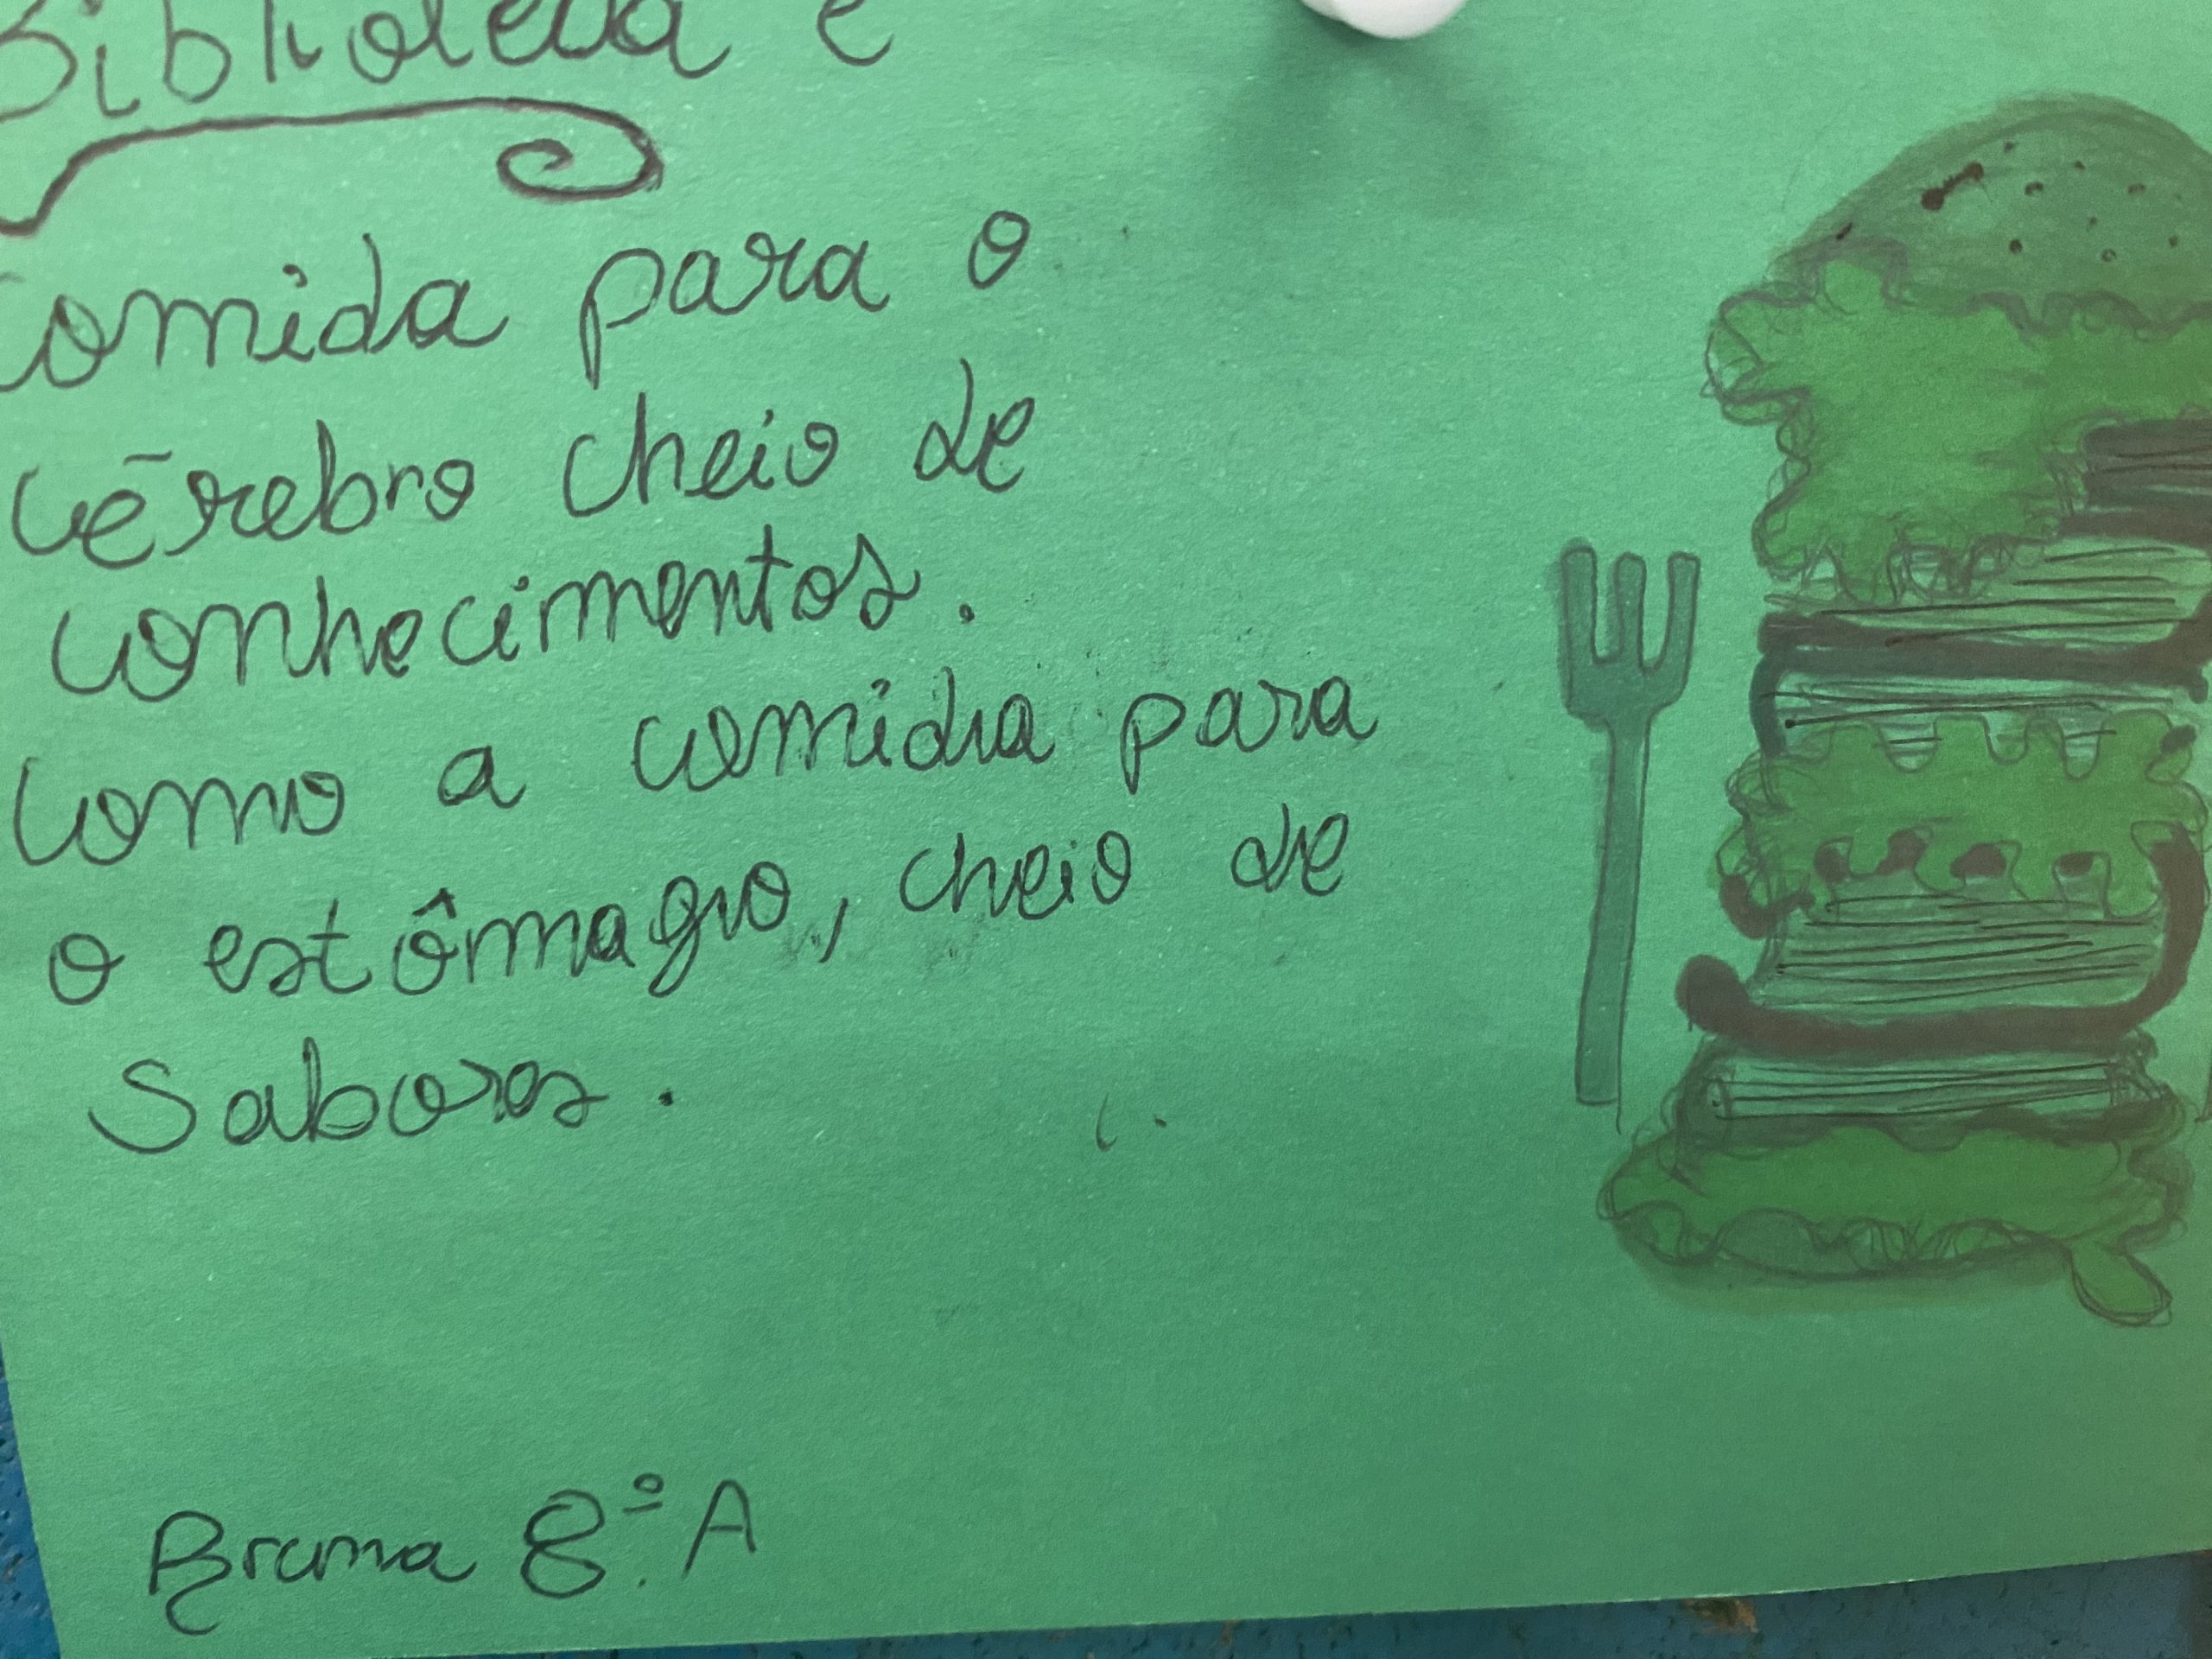 Biblioteca é
comida para o
cérebro cheio de
conhecimentos.
como a comida para
o estômago, cheio de
Sabores.
Bruna 8º A